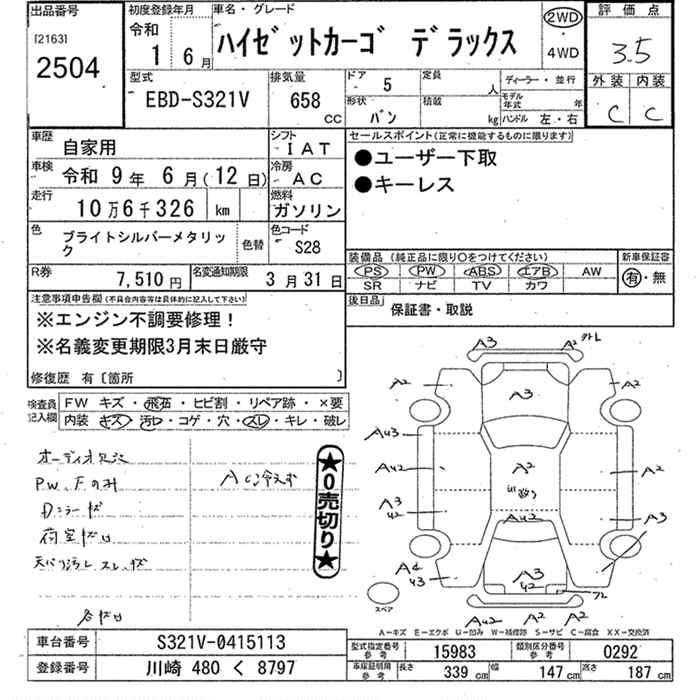 出品番号 初度登録年月 車名・グレード 評価点
[2163] 令和
2504 1 6月 ハイゼットカーゴ デラックス 2WD ・ 4WD 3.5
型式 排気量 ドア 5 定員 人 ディーラー・並行 外装 内装
EBD-S321V 658 CC 形状 バン 積載 kg モデル年式 年 ハンドル 左・右 C C
車歴 自家用 シフト IAT セールスポイント(正常に機能するものに限ります)
車検 令和 9年 6月(12日) 冷房 AC ●ユーザー下取
走行 10万6千326 km 燃料 ガソリン ●キーレス
色 ブライトシルバーメタリック 色替 色コード S28
装備品(純正品に限り○をつけてください) 新車保証書
PS PW ABS エアB AW 有・無
SR ナビ TV カワ
R券 7,510円 名変通知期限 3月31日
後日品 保証書・取説
注意事項申告欄(不具合内容等は具体的に記入して下さい)
※エンジン不調要修理!
※名義変更期限3月末日厳守
修復歴 有〔箇所 〕
検査員記入欄 FW キズ・飛石・ヒビ割・リペア跡・×要
内装 キズ・汚レ・コゲ・穴・スレ・キレ・破レ
PW、Fのみ
★0売切り★
A3 A2
A2 A3 A2
A43
A42 A2 A2
A3 42 A42 A3
A3 42
43
A42 A2 A2
スペア
A-キズ E-エクボ U-凹み W-補修跡 S-サビ C-腐食 XX-交換済
車台番号 S321V-0415113 型式指定番号 参考 15983 類別区分番号 参考 0292
登録番号 川崎 480 く 8797 車庫証明用 参考 長さ 339 cm 幅 147 cm 高さ 187 cm